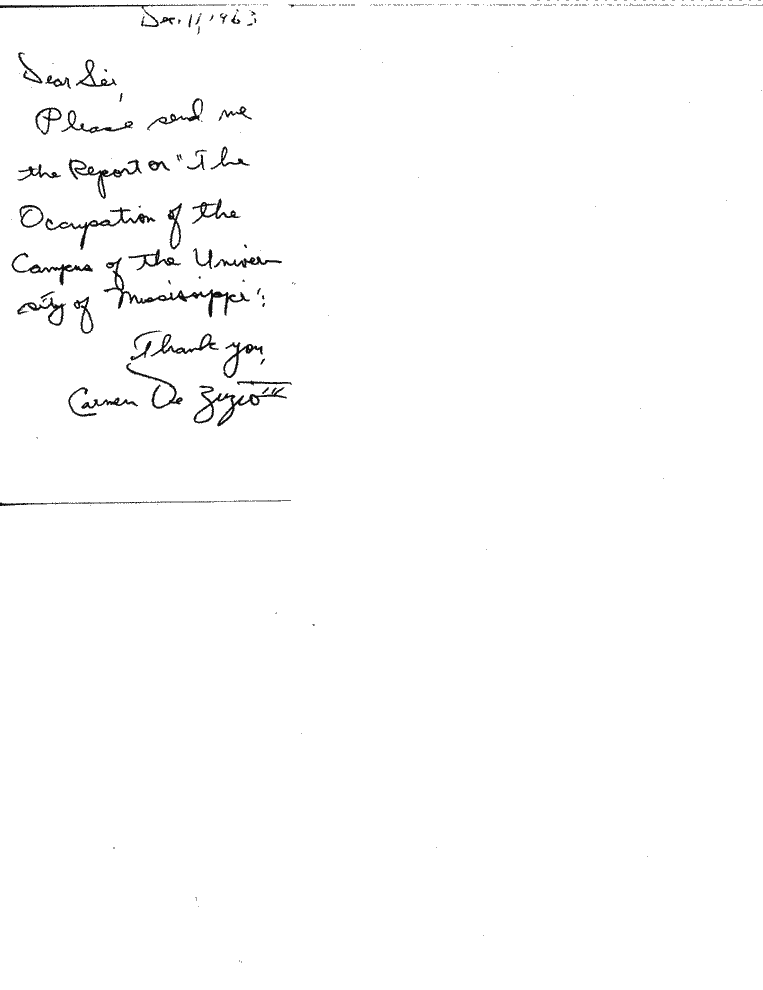 Dec. 11, 1963
Dear Sir,
Please send me
the Report on "The
Occupation of the
Campus of the Univer-
sity of Mississippi".
Thank you,
Carmen De Zuzio III